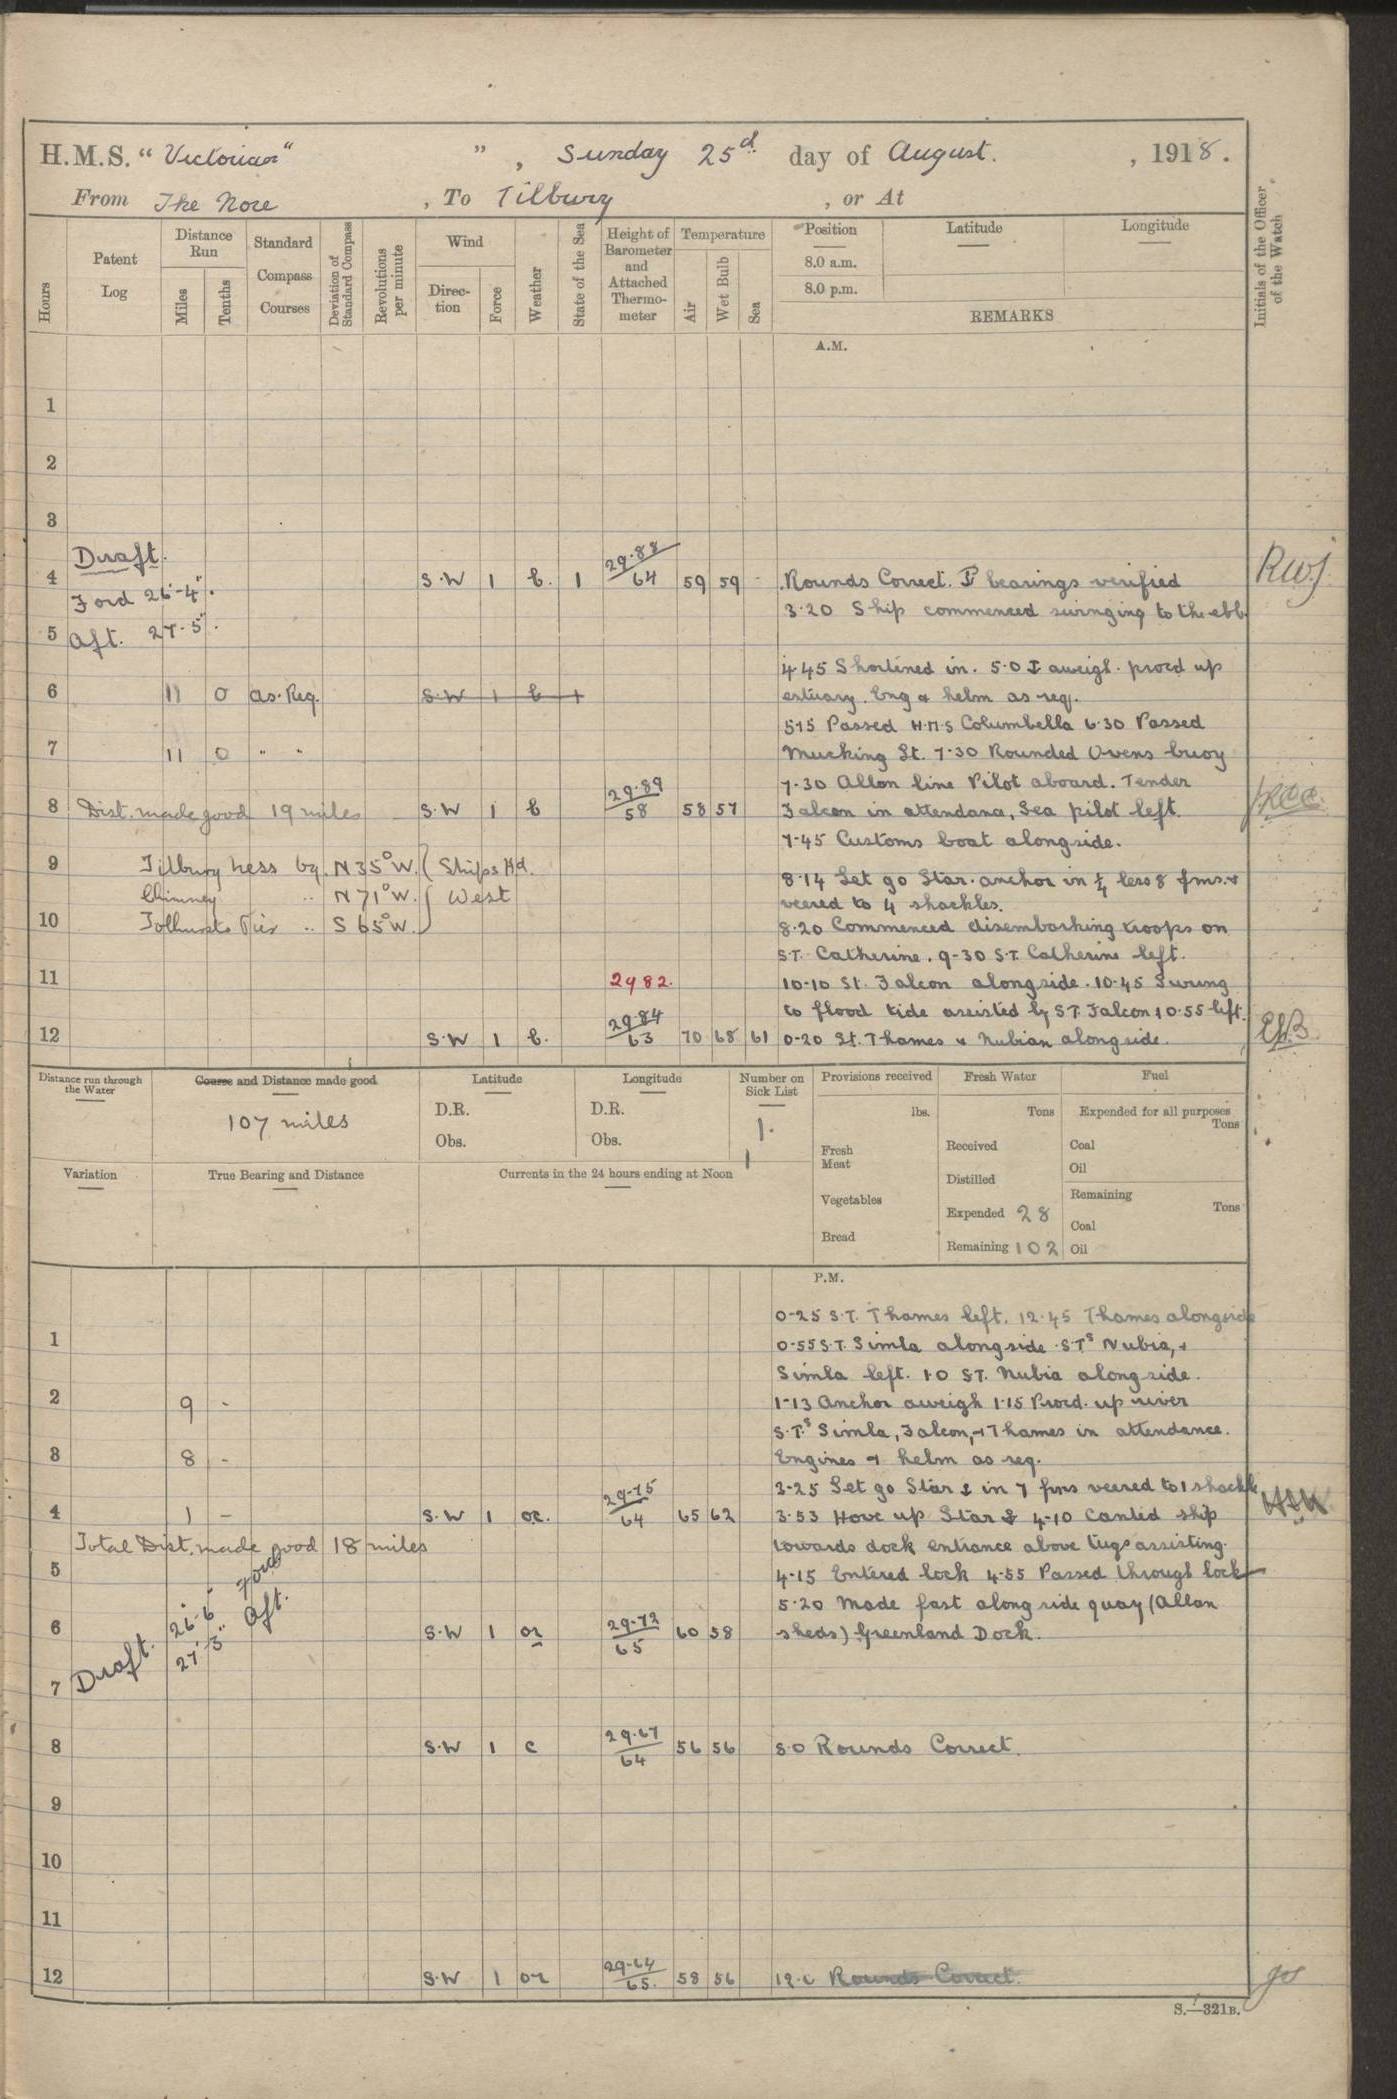 H.M.S. " Victorian " " , Sunday 25d day of August. , 1918.
From The Nore , To Tilbury , or At
Hours
Patent Log
Distance Run
Miles
Tenths
Standard Compass Courses
Deviation of Standard Compass
Revolutions per minute
Wind
Direction
Force
Weather
State of the Sea
Height of Barometer and Attached Thermometer
Temperature
Air
Wet Bulb
Sea
Position
8.0 a.m.
8.0 p.m.
Latitude
Longitude
REMARKS
Initials of the Officer of the Watch
A.M.
1
2
3
Draft.
4 S.W 1 b. 1 29.88 64 59 59 - Rounds Correct. bearings verified RWJ
Ford 26'-4".
3.20 Ship commenced swinging to the ebb
5 Aft. 27.5".
4.45 Shortened in. 5.0 aweigh. procd up
6 11 0 as. Req. S.W 1 b 1 estuary. Eng & helm as req.
5.15 Passed H.M.S Columbella 6.30 Passed
7 11 0 " " Mucking Lt. 7.30 Rounded Ovens buoy
7.30 Allan line Pilot aboard. Tender
8 Dist. made good 19 miles S.W 1 b 29.89 58 58 57 Falcon in attendance, Sea pilot left.
7.45 Customs boat alongside.
9 Tilbury Ness bg. N 35° W. Ships Hd.
8.14 Let go Star. anchor in ¼ less 8 fms. &
Chimney .. N 71° W. West
veered to 4 shackles.
10 Tolhursts Pier .. S 65° W.
8.20 Commenced disembarking troops on
S.T. Catherine. 9-30 S.T. Catherine left.
11 2982. 10-10 St. Falcon alongside. 10.45 Swung
to flood tide assisted by S.T. Falcon 10.55 left.
12 S.W 1 b. 29.84 63 70 68 61 0-20 St. Thames & Nubian alongside.
Distance run through the Water
Course and Distance made good
107 miles
Latitude
D.R.
Obs.
Longitude
D.R.
Obs.
Number on Sick List
1.
Provisions received
lbs.
Fresh Meat
Vegetables
Bread
Fresh Water
Tons
Received
Distilled
Expended 28
Remaining 102
Fuel
Expended for all purposes
Tons
Coal
Oil
Remaining
Tons
Coal
Oil
Variation
True Bearing and Distance
Currents in the 24 hours ending at Noon
P.M.
0-25 S.T. Thames left. 12.45 Thames alongside
1 0-55 S.T. Simla alongside S.Ts Nubia, &
Simla left. 1.0 S.T. Nubia alongside.
2 9 - 1-13 Anchor aweigh 1.15 Procd. up river
S.Ts Simla, Falcon, & Thames in attendance.
3 8 - Engines & helm as req.
3-25 Let go Star in 7 fms veered to 1 shackle
4 1 - S.W 1 oc. 29-75 64 65 62 3.53 Hove up Star 4-10 Canted ship
Total Dist. made good 18 miles towards dock entrance above tugs assisting.
5 4-15 Entered lock 4-55 Passed through lock
5.20 Made fast alongside quay (Allan
6 S.W 1 or 29-72 65 60 58 sheds) Greenland Dock.
Draft. 26'.6" Ford
27'.3" Aft.
7
8 S.W 1 c 29.67 64 56 56 8.0 Rounds Correct.
9
10
11
12 S.W 1 or 29-64 65. 58 56 12.0 Rounds Correct.
S.—321B.